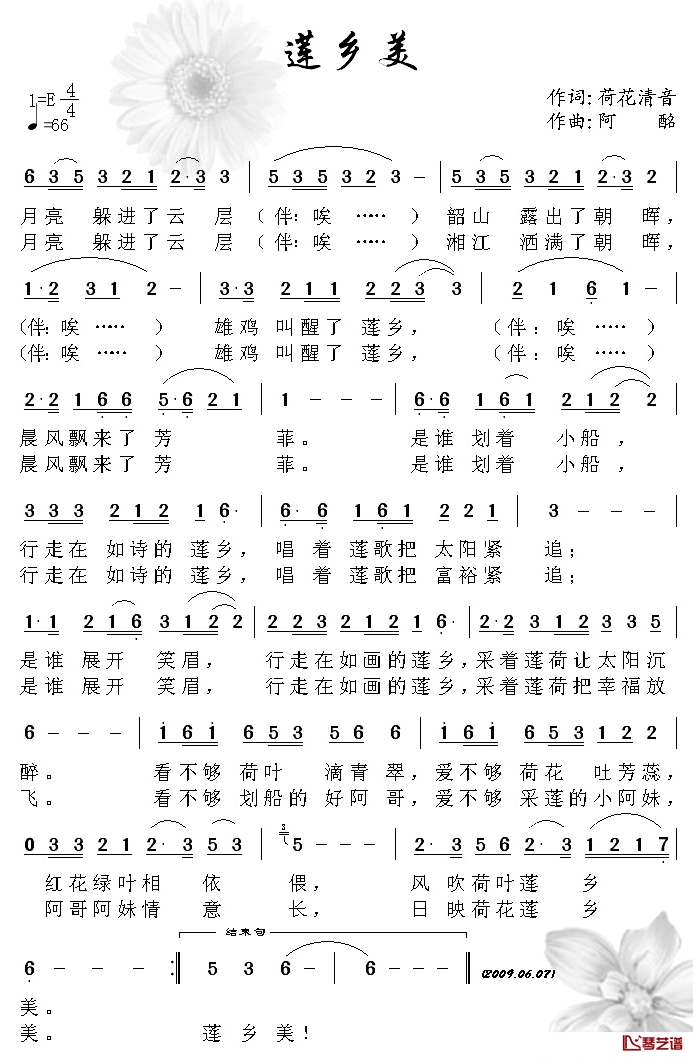 莲乡美
1=E 4/4
♩=66
作词: 荷花清音
作曲: 阿 酪
6 35 321 2·3 3 | 535 35 323 - | 535 35 321 2·3 2 |
月亮 躲进了云 层 (伴: 唉 ……) 韶山 露出了朝 晖,
月亮 躲进了云 层 (伴: 唉 ……) 湘江 洒满了朝 晖,
1·2 31 2 - | 3·3 212 223 3 | 2 1 6 1 - |
(伴: 唉 ……) 雄鸡 叫醒了 莲乡, (伴: 唉 ……)
(伴: 唉 ……) 雄鸡 叫醒了 莲乡, (伴: 唉 ……)
2·2 166 5·6 21 | 1 - - - | 6·6 161 212 2 |
晨风飘来了 芳 菲。 是谁 划着 小船,
晨风飘来了 芳 菲。 是谁 划着 小船,
333 212 16· | 6·6 161 2321 | 3 - - - |
行走在 如诗的 莲乡, 唱 着 莲歌把 太阳紧 追;
行走在 如诗的 莲乡, 唱 着 莲歌把 富裕紧 追;
1·1 216 312 2 | 223 212 12 6· | 2·2 312 3123 |
是谁 展开 笑眉, 行走在如画的莲乡, 采着莲荷让太阳沉
是谁 展开 笑眉, 行走在如画的莲乡, 采着莲荷把幸福放
6 - - - | 161 653 56 6 | 161 653 122 |
醉。 看不够 荷叶 滴青 翠, 爱不够 荷花 吐芳蕊,
飞。 看不够 划船的 好阿 哥, 爱不够 采莲的小阿妹,
033 21 2·3 53 | 3 5 - - - | 2·3 56 2·3 1217 |
红花绿叶相 依 偎, 风 吹荷叶莲 乡
阿哥阿妹情 意 长, 日 映荷花莲 乡
结束句
6 - - - :| 5 3 6 - | 6 - - - |
(2009.06.07)
美。
美。 莲 乡 美!
琴艺谱